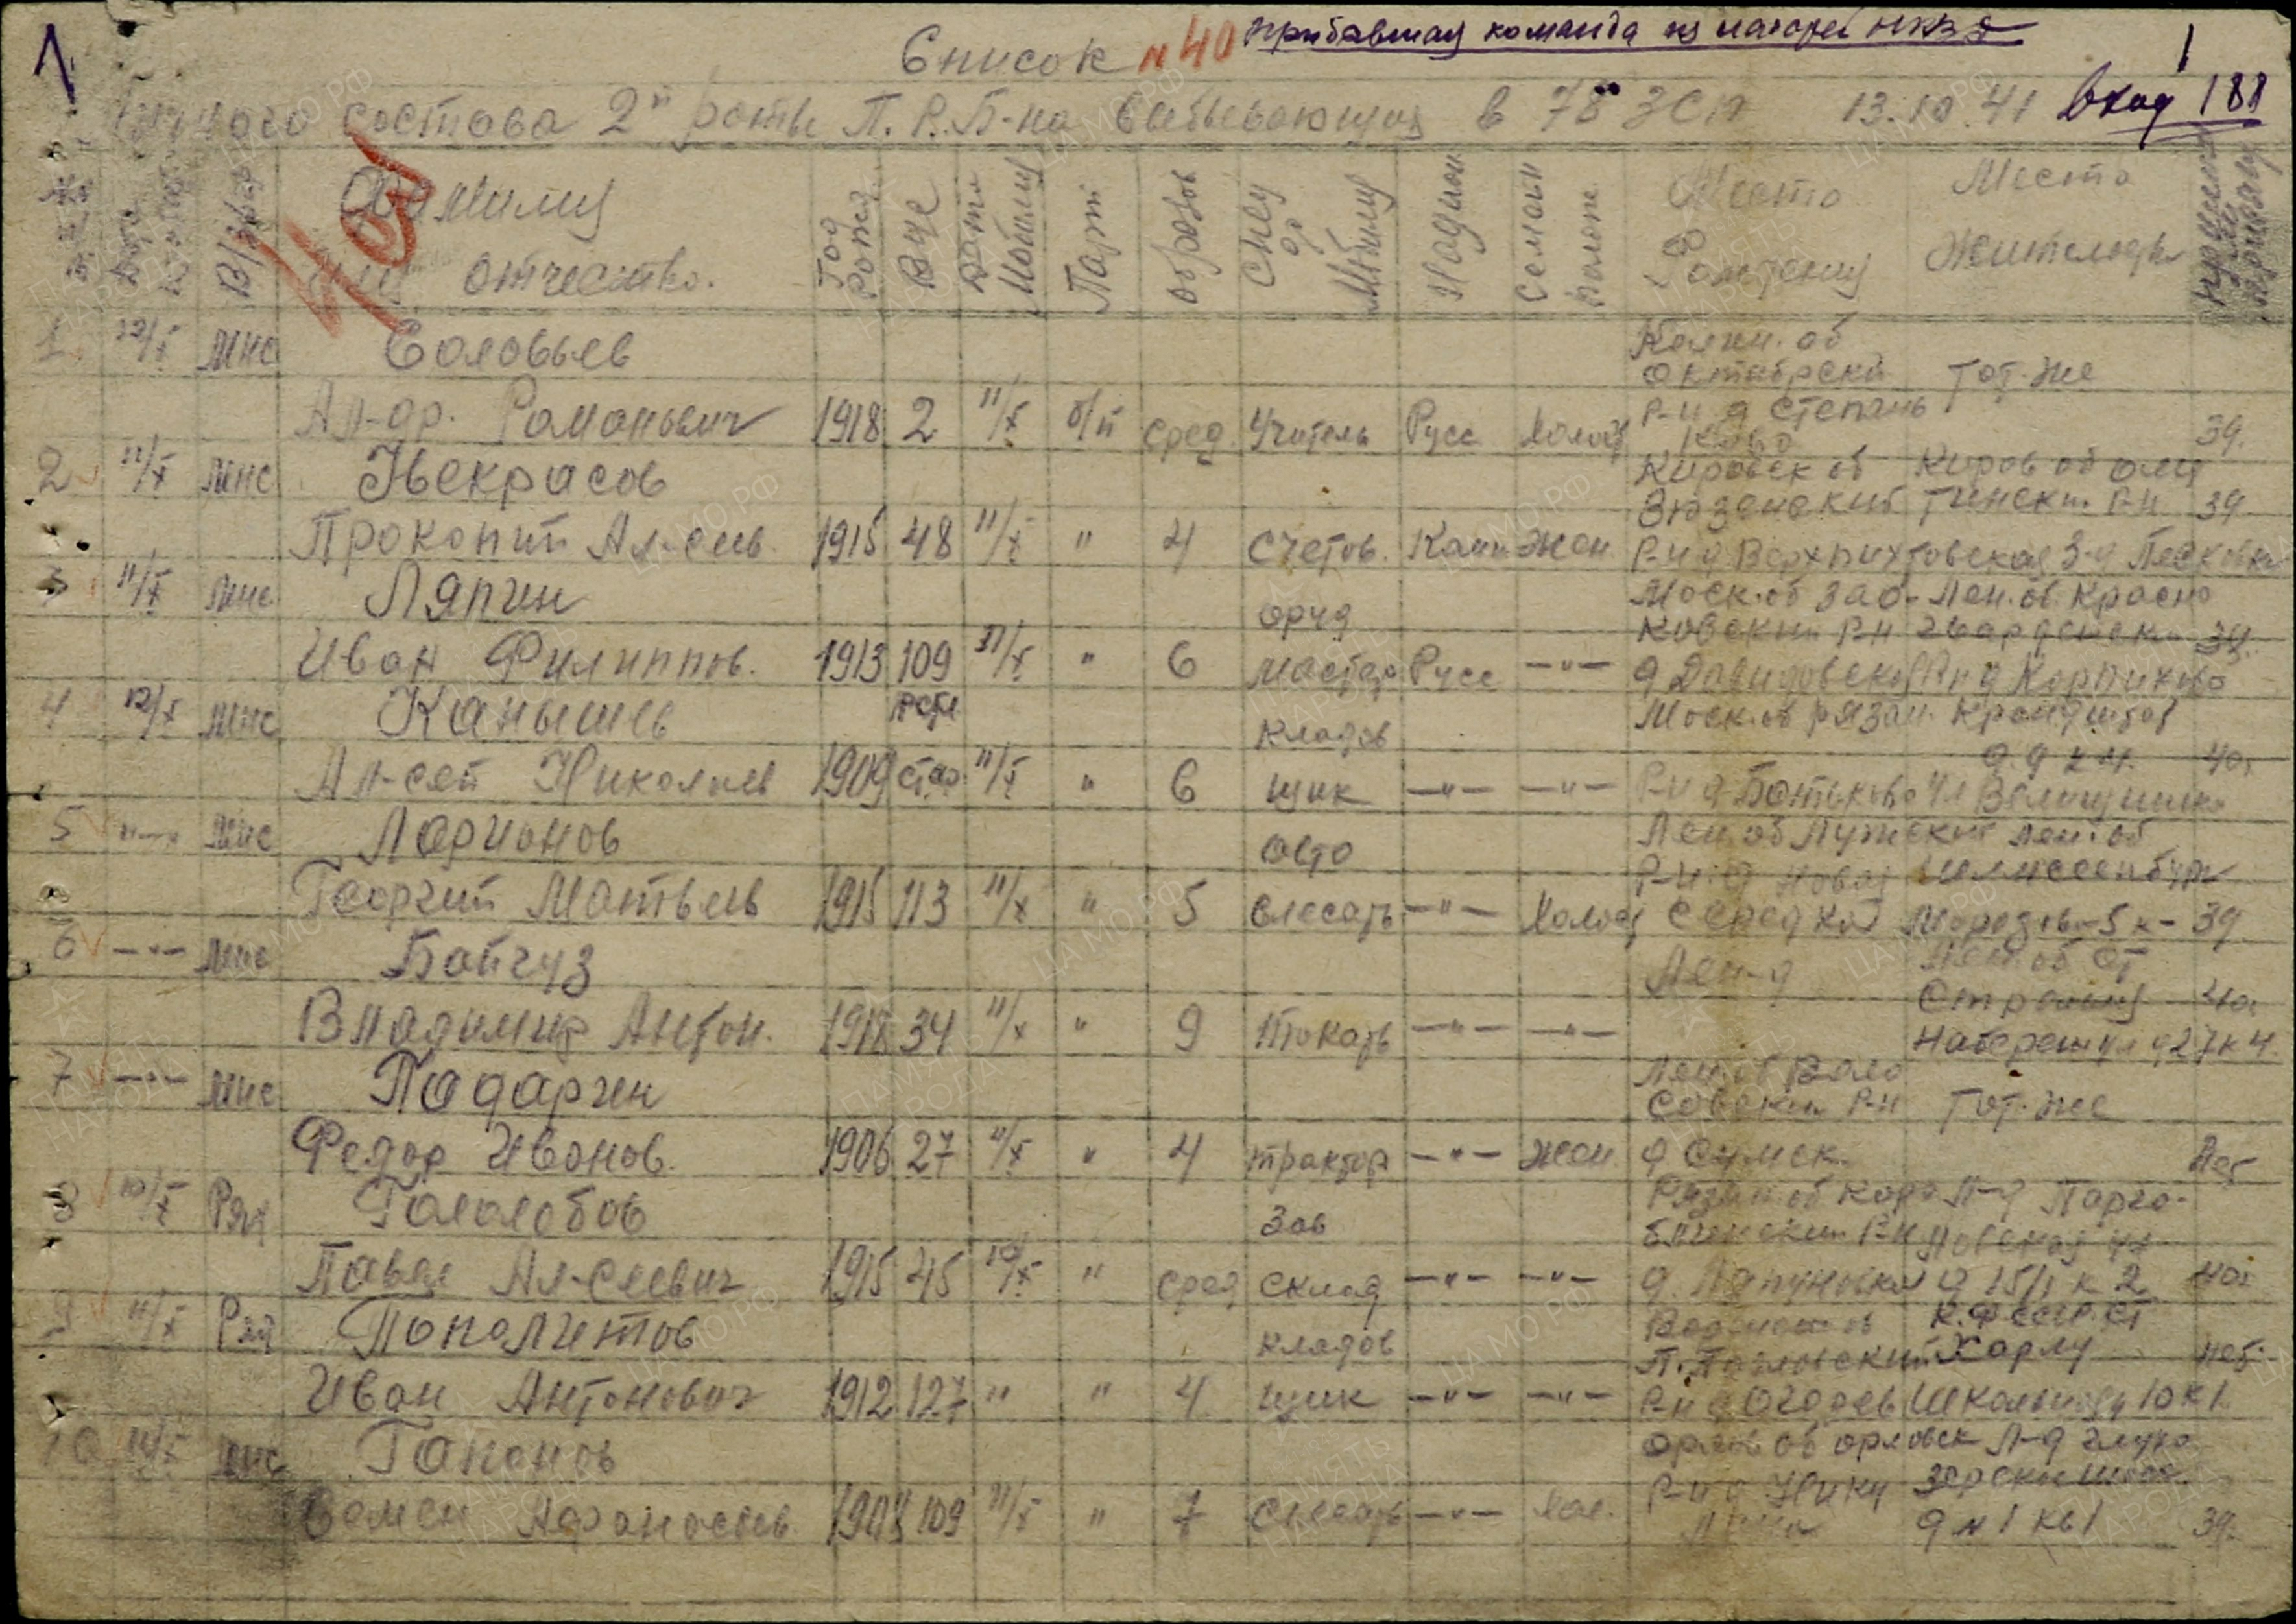 1 Список N 40 прибывшая команда из лагерей НКВД 1
личного состава 2й роты П.Р.Б-на выбывающих в 78 ЗСП 13.10.41 Вход 188
401
В/зван Фамилия имя отчество. Год рожд ВУС Дата Мобилиз Парт образов Спец до Мобилиз Национ Семейн полож Место Рождения Место Жительства
1. 12/X мнс Соловьев Калин. об
Октябрский Тот-же
Ал-др. Романович 1918 2 11/X б/п сред. Учитель Русс Холост Р-н д Степань
ково 39.
2 11/X мнс Некрасов Кировск об Киров об Омут
Зюздинский нинский Р-н 39
Прокопий Ал-еев. 1915 48 11/X " 4 Счетов. Коми Жен Р-н д Верхпихтовская З-д Песковка
3 11/X мнс Ляпин Моск. об Лен. об. Красно
оруд ковский Р-н гвардейский 39.
Иван Филиппов. 1913 109 11/X " 6 мастер Русс —"— д Давидовской Р-н д Корпиково
4 12/X мнс Канышев Моск. об Рязан. Кронштад
кладов
д. 9 к 4. 40.
Ал-сей Николаев 1909 стар 11/X " 6 щик —"— —"— Р-н д Ботьково ул
5 —"— мнс Ларионов Лен. об Лужский Лен. об
авто Р-н. д Новая Шлиссенбург
Георгий Матвеев 1915 113 11/X " 5 слесарь —"— Холост Середка 5 к- 39
6 —"— мнс Байгуз Лен-д Лен. об ст
40.
Владимир Антон. 1918 34 11/X " 9 Токарь —"— —"— Набереж ул д 27 к 4
7 —"— мнс Падарин Лен. об Воло
совский Р-н Тот-же
Федор Иванов. 1906 27 11/X " 4 трактор —"— Жен д Сумск.
8 10/X Ряд Гололобов Рязан. об Кора Л-д Парго-
Зав блинский Р-н ловская ул
Павел Ал-сеевич 1915 45 10/X " сред склад —"— —"— д. Ляпуновка д 15/1 к 2 40.
9 11/X Ряд Пополитов К.Ф ССР. ст
кладов П. Харлу
Иван Антонович 1912 127 " " 4 щик —"— —"— Р-н д Огорев Школьная 10 к 1.
10 11/X мнс Гапонов Орлов об Орловск Л-д глухо
зерское шоссе
Семен Афанасьев. 109 11/X " 7 Слесарь —"— Хол. д N 1 кв 1 39.
ЦАМО РФ
ПАМЯТЬ НАРОДА